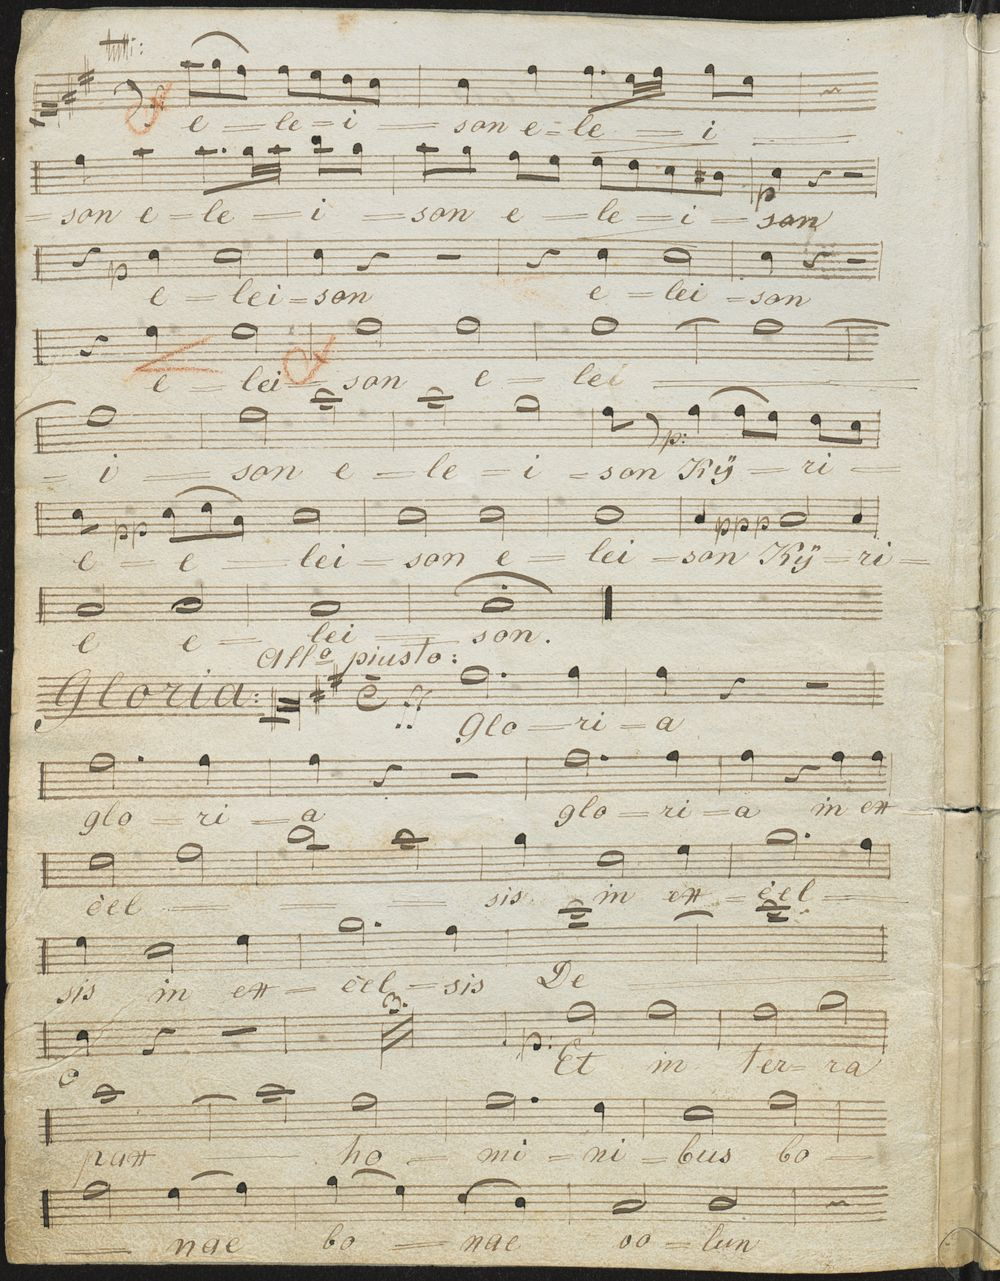 tutti:
e = le = i = son e = le = i
= son e = le = i = son e = le = i = son
p
p e = lei = son e = lei = son
e = lei = son e = lei
= i = son e = le = i = son Kÿ = ri =
p:
e = e = lei = son e = lei = son Kÿ = ri =
pp ppp
e e = lei = son.
Allo piusto:
Gloria: Glo = ri = a
glo = ri = a glo = ri = a in ex
cel = sis in ex = cel =
sis in ex = cel = sis De
3.
o p. Et in ter = ra
pax ho = mi = ni = bus bo =
= nae bo = nae vo = lun